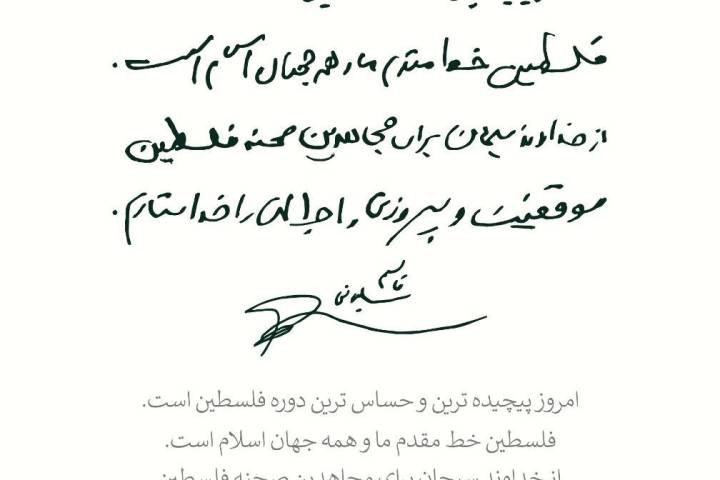 فلسطین خط مقدم ما و همه جهان اسلام است.
از خداوند سبحان برای مجاهدین صحنه فلسطین
موفقیت و پیروزی و اجر الهی را خواستارم.
قاسم
سلیمانی
امروز پیچیده ترین و حساس ترین دوره فلسطین است.
فلسطین خط مقدم ما و همه جهان اسلام است.
از خداوند سبحان برای مجاهدین صحنه فلسطین